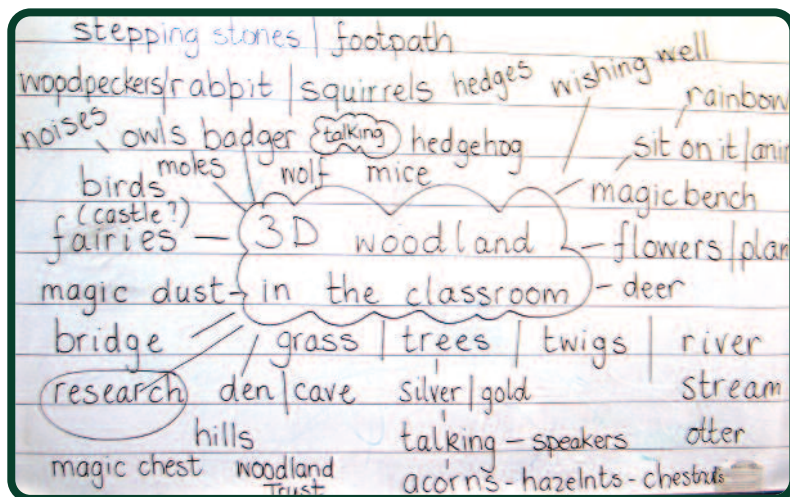 stepping stones | footpath
woodpeckers/rabbit | squirrels hedges wishing well
rainbow
noises owls badger talking hedgehog sit on it/
moles wolf mice
birds magic bench
(castle?)
fairies 3D woodland flowers/
magic dust in the classroom deer
bridge grass | trees | twigs | river
research den | cave silver | gold stream
hills talking - speakers otter
magic chest woodland acorns - hazelnts - chestnuts
Trust